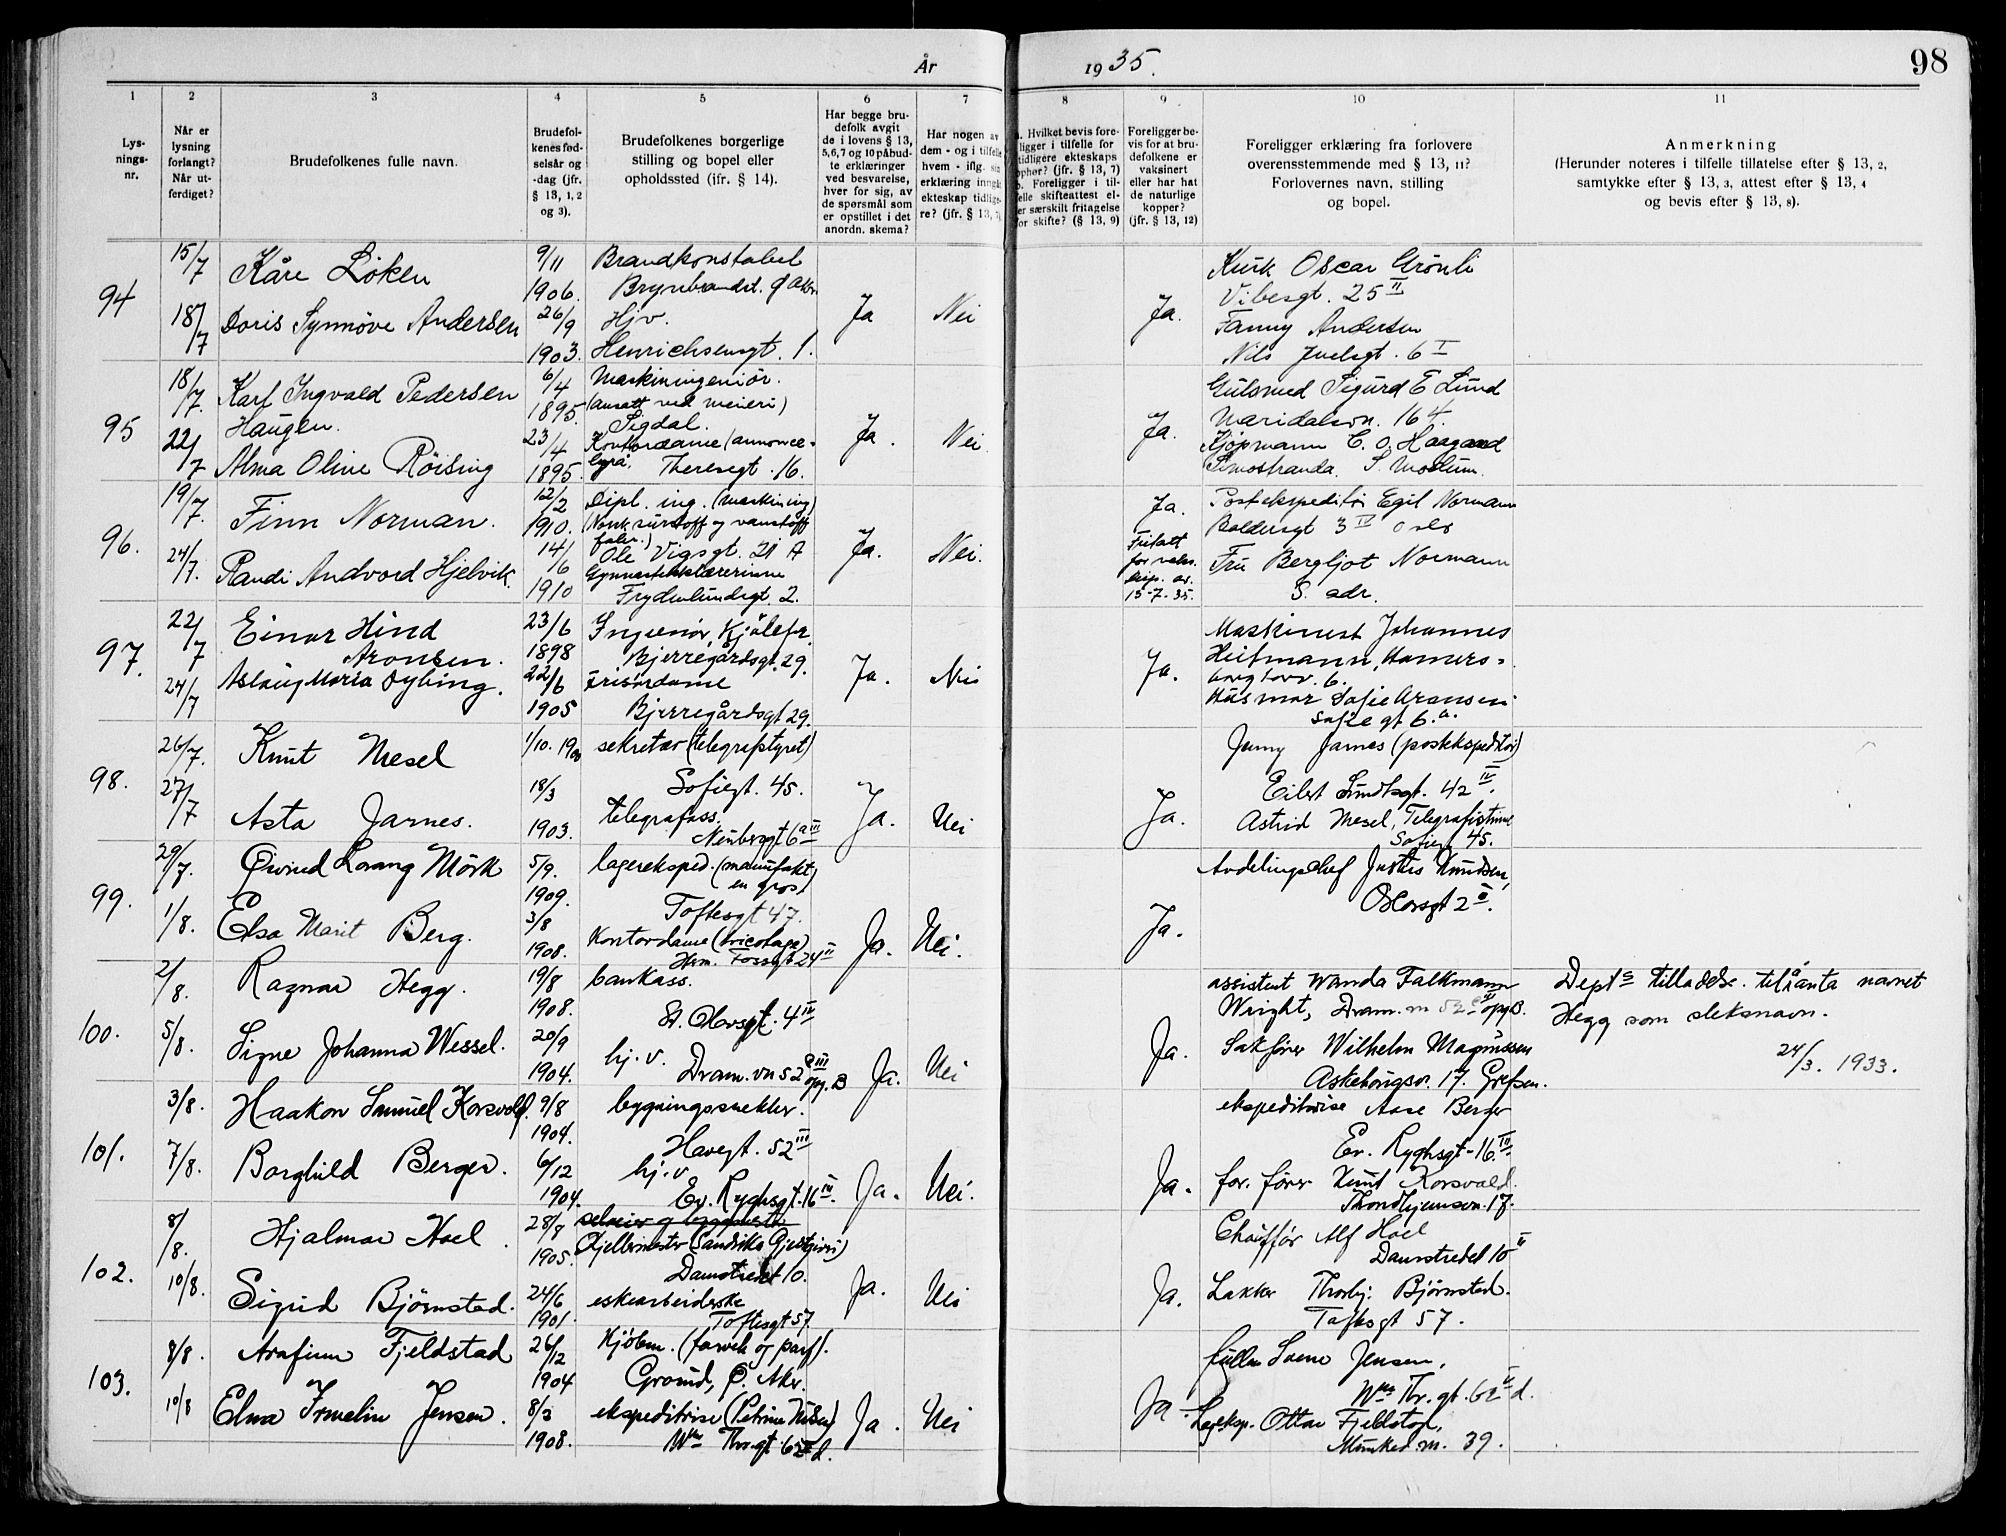 År 1935.
98
1 2 3 4 5 6 7 8 9 10 11
Lys-
nings-
nr.
Når er
lysning
forlangt?
Når ut-
ferdiget?
Brudefolkenes fulle navn.
Brudefol-
kenes fød-
selsår og
-dag (jfr.
§ 13, 1, 2
og 3).
Brudefolkenes borgerlige
stilling og bopel eller
opholdssted (ifr. § 14).
Har begge bru-
defolk avgit
de i lovens § 13,
5,6,7 og 10 påbud-
te erklæringer
ved besvarelse,
hver for sig, av
de spørsmål som
er opstillet i det
anordn. skema?
Har nogen av
dem - og i tilfelle
hvem - iflg. sin
erklæring inngå
ekteskap tidlig
re? (jfr. § 13, 7)
Hvilket bevis fore-
ligger i tilfelle for
tidligere ekteskaps
ophør? (jfr. § 13, 7)
b. Foreligger i til-
elle skifteattest el-
er særskilt fritagelse
for skifte? (§ 13, 9)
Foreligger be-
vis for at bru-
defolkene er
vaksinert
eller har hat
de naturlige
kopper?
(jfr. § 13, 12)
Foreligger erklæring fra forlovere
overensstemmende med § 13, 11?
Forlovernes navn, stilling
og bopel.
Anmerkning
(Herunder noteres i tilfelle tillatelse efter § 13, 2,
samtykke efter § 13, 3, attest efter § 13, 4
og bevis efter § 13, 8).
94
15/7
18/7
Kåre Löken
Doris Synnöve Andersen
9/11
1906.
26/9
1903.
Brandkonstabel
Brynbrandst. Ø Aker
Hjv.
Henrichsensgt. 1.
Ja
Nei
Ja.
Oscar Grönli
Vibesgt. 25 II
Fanny Andersen
Nils Juelsgt. 6 I
95
18/7.
22/7
Karl Ingvald Pedersen
Haugen.
Alma Olive Röising
6/4
1895.
23/4
1895.
Maskiningeniör.
(Ansatt ved meieri)
Sigdal.
Kontordame (annonce-
byrå. Theresegt. 16.
Ja.
Nei
Ja.
Gulsmed Sigurd E Lund
Maridalsvn. 164.
Kjöpmann C. O. Haagaard
Simostranda. S. Modum.
96.
19/7.
24/7.
Finn Norman.
Randi Andvord Hjelvik
12/2
1910.
14/6
1910
Dipl. ing. (maskining)
(Norsk surstoff og vannstoff
fabr.)
Ole Vigsgt. 21 A
Gymnastikklærerinne
Frydenlundsgt. 2.
Ja.
Nei.
Ja.
Fritatt
for vaks.
av.
15-7-35.
Postekspeditör Egil Normann
Baldersgt 3 IV Oslo
Fru Bergljot Normann
S. adr.
97.
22/7
24/7
Einar Hind
Aronsen.
Aslaug Maria Dybing.
23/6
1898
22/6
1905
Ingeniör, Kjölefr.
Bjerregårdsgt. 29.
Frisördame
Bjerregårdsgt 29.
Ja.
Nei
Ja.
Maskinist Johannes
Heitmann, Hamers-
borg torv. 6.
Husmor Sofie Aronsen
Sofie gt 6. a.
98.
26/7.
27/7
Knut Mesel
Asta Jarnes.
1/10. 1900
18/3
1903.
sekretær (telegrafstyret)
Sofiegt. 45.
telegrafass.
Neubergt 6 a III
Ja.
Nei
Ja.
Jenny Jarnes (postekspeditör)
Eilert Sundtsgt. 42 IV.
Astrid Mesel, Telegrafistinne
Sofiegt 45.
99.
29/7.
1/8.
Öivind Lorang Mörk
Elsa Marit Berg.
5/9.
1909.
3/8
1908.
lagereksped. (manufakt.
en gros)
Toftesgt 47.
Kontordame (tricotage)
Hrm. Fossgt 24 II
Ja.
Nei.
Ja.
Avdelingschef Justus Knudsen,
Osloesgt 2 II.
100.
2/8.
5/8.
Ragnar Hegg.
Signe Johanna Wessel.
19/8
1908.
20/9
1904.
bankass.
St. Olavsgt. 4 IV
hj. v.
Dram. vn 52 e III
opg. B
Ja.
Nei
Ja.
assistent Wanda Falkmann
Wright, Dram. vn 52 e opg B.
Sakfører Wilhelm Magnussen
Askehaugsv. 17. Grefsen.
Depts tilladelse. til å anta navnet
Hegg som slektsnavn.
24/3. 1933.
101.
3/8.
7/8.
Haakon Samuel Korsvold.
Borghild Berger.
9/8
1904.
6/12
1904.
bygningssnekker.
Havegt. 52 III
hj. v.
Ev. Ryghsgt. 16 IV.
Ja.
Nei.
Ja.
ekspeditrise Aase Berger
Ev. Ryghsgt-16. IV
for. fører Knut Korsvold.
Trondhjemsvn. 17.
102.
8/8.
10/8.
Hjalmar Hoel.
Sigrid Björnstad.
28/8
1905.
24/6
1901.
Kjellermester (Sandvika Gjestgiveri)
Damstredet 10.
eskearbeiderske
Toftesgt 57
Ja.
Nei
Ja.
Chauffør Alf Hoel
Damstredet 10 II
Lakker Thorbj. Björnstad.
Toftesgt 57.
103.
8/8.
10/8
Arnfinn Fjeldstad
Elma Irmelin Jensen.
26/12
1904
8/3
1908.
Kjöbm. (farveh. og parf).
Grorud, Ö. Aker.
ekspeditrise (Petrine Nilsen)
Wm Thr. gt. 62 II d.
Ja.
Nei
Ja.
Jensen,
Wm Thr. gt. 62 II d.
Lageksp. Ottar Fjeldstad,
Munked. vn. 39.